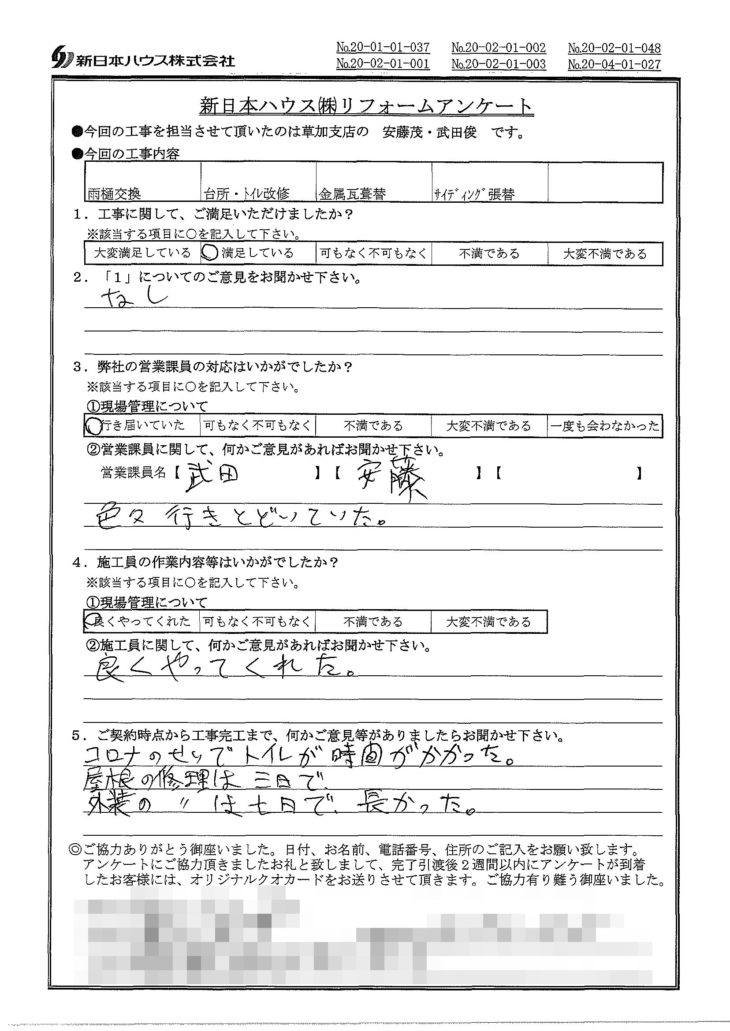 新日本ハウス株式会社
№20-01-01-037 №20-02-01-002 №20-02-01-048
№20-02-01-001 №20-02-01-003 №20-04-01-027
新日本ハウス㈱リフォームアンケート
●今回の工事を担当させて頂いたのは草加支店の 安藤茂・武田俊 です。
●今回の工事内容
雨樋交換 台所・ﾄｲﾚ改修 金属瓦葺替 ｻｲﾃﾞｨﾝｸﾞ張替
1．工事に関して、ご満足いただけましたか？
※該当する項目に○を記入して下さい。
大変満足している ○満足している 可もなく不可もなく 不満である 大変不満である
2．「1」についてのご意見をお聞かせ下さい。
なし
3．弊社の営業課員の対応はいかがでしたか？
※該当する項目に○を記入して下さい。
①現場管理について
○行き届いていた 可もなく不可もなく 不満である 大変不満である 一度も会わなかった
②営業課員に関して、何かご意見があればお聞かせ下さい。
営業課員名【 武田 】【 安藤 】【 】
色々 行きとどいていた。
4．施工員の作業内容等はいかがでしたか？
※該当する項目に○を記入して下さい。
①現場管理について
○良くやってくれた 可もなく不可もなく 不満である 大変不満である
②施工員に関して、何かご意見があればお聞かせ下さい。
良くやってくれた。
5．ご契約時点から工事完工まで、何かご意見等がありましたらお聞かせ下さい。
コロナのせいでトイレが時間がかかった。
屋根の修理は三日で、
外装の 〃 は七日で、長かった。
◎ご協力ありがとう御座いました。日付、お名前、電話番号、住所のご記入をお願い致します。
アンケートにご協力頂きましたお礼と致しまして、完了引渡後２週間以内にアンケートが到着
したお客様には、オリジナルクオカードをお送りさせて頂きます。ご協力有り難う御座いました。